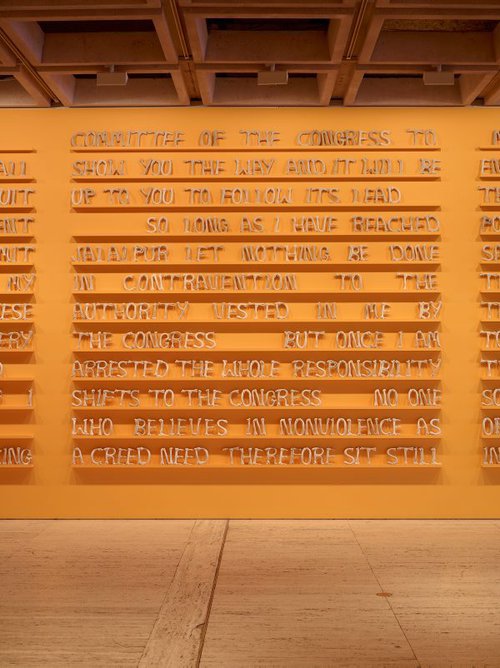 COMMITTEE OF THE CONGRESS TO
SHOW YOU THE WAY AND IT WILL BE
UP TO YOU TO FOLLOW ITS LEAD
SO LONG AS I HAVE REACHED
JALALPUR LET NOTHING BE DONE
IN CONTRAVENTION TO THE
AUTHORITY VESTED IN ME BY
THE CONGRESS BUT ONCE I AM
ARRESTED THE WHOLE RESPONSIBILITY
SHIFTS TO THE CONGRESS NO ONE
WHO BELIEVES IN NONVIOLENCE AS
A CREED NEED THEREFORE SIT STILL